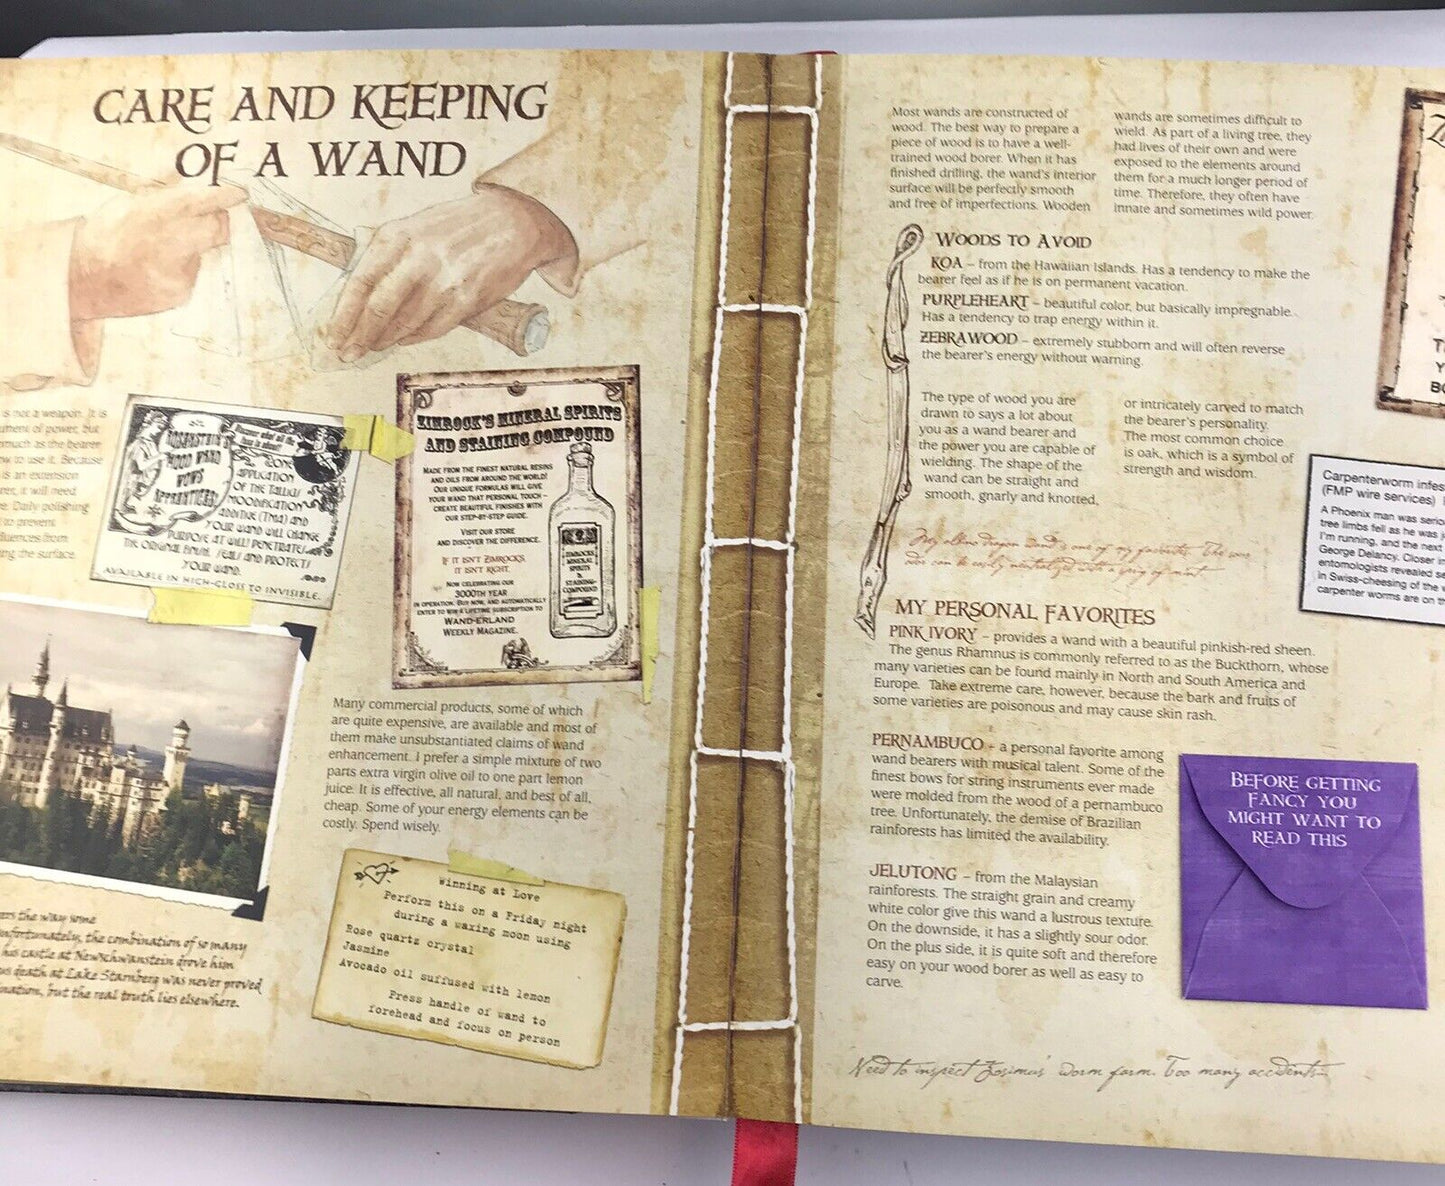 CARE AND KEEPING
OF A WAND
is not a weapon. It is
ument of power, but
much as the bearer
w to use it. Because
is an extension
rer, it will need
e. Daily polishing
to prevent
fluences from
ng the surface.
ROSENSTEIN'S
WOOD WAND
WOWS
APPRENTICES!
Discover what all the
fuss is about!
ONE
APPLICATION
OF THE TALLIUS
MOODIFICATION
ADDITIVE (TMA) AND
YOUR WAND WILL CHANGE
PURPOSE AT WILL! PENETRATES
THE ORIGINAL FINISH, SEALS AND PROTECTS
YOUR WAND.
AVAILABLE IN HIGH-GLOSS TO INVISIBLE.
ZIMROCK'S MINERAL SPIRITS
AND STAINING COMPOUND
MADE FROM THE FINEST NATURAL RESINS
AND OILS FROM AROUND THE WORLD!
OUR UNIQUE FORMULAS WILL GIVE
YOUR WAND THAT PERSONAL TOUCH –
CREATE BEAUTIFUL FINISHES WITH
OUR STEP-BY-STEP GUIDE.
VISIT OUR STORE
AND DISCOVER THE DIFFERENCE.
IF IT ISN'T ZIMROCK'S
IT ISN'T RIGHT.
NOW CELEBRATING OUR
3000TH YEAR
IN OPERATION. BUY NOW, AND AUTOMATICALLY
ENTER TO WIN A LIFETIME SUBSCRIPTION TO
WAND-ERLAND
WEEKLY MAGAZINE.
ZIMROCKS
MINERAL
SPIRITS
&
STAINING
COMPOUND
Many commercial products, some of which
are quite expensive, are available and most of
them make unsubstantiated claims of wand
enhancement. I prefer a simple mixture of two
parts extra virgin olive oil to one part lemon
juice. It is effective, all natural, and best of all,
cheap. Some of your energy elements can be
costly. Spend wisely.
ers the way some
nfortunately, the combination of so many
his castle at Newschwanstein drove him
us death at Lake Starnberg was never proved
ination, but the real truth lies elsewhere.
Winning at Love
Perform this on a Friday night
during a waxing moon using
Rose quartz crystal
Jasmine
Avocado oil suffused with lemon
Press handle of wand to
forehead and focus on person
Most wands are constructed of
wood. The best way to prepare a
piece of wood is to have a well-
trained wood borer. When it has
finished drilling, the wand's interior
surface will be perfectly smooth
and free of imperfections. Wooden
wands are sometimes difficult to
wield. As part of a living tree, they
had lives of their own and were
exposed to the elements around
them for a much longer period of
time. Therefore, they often have
innate and sometimes wild power.
WOODS TO AVOID
KOA – from the Hawaiian Islands. Has a tendency to make the
bearer feel as if he is on permanent vacation.
PURPLEHEART – beautiful color, but basically impregnable.
Has a tendency to trap energy within it.
ZEBRAWOOD – extremely stubborn and will often reverse
the bearer's energy without warning.
The type of wood you are
drawn to says a lot about
you as a wand bearer and
the power you are capable of
wielding. The shape of the
wand can be straight and
smooth, gnarly and knotted,
or intricately carved to match
the bearer's personality.
The most common choice
is oak, which is a symbol of
strength and wisdom.
My albino dragon wand is one of my favorites. The sour
odor can be easily neutralized with a sprig of mint.
MY PERSONAL FAVORITES
PINK IVORY – provides a wand with a beautiful pinkish-red sheen.
The genus Rhamnus is commonly referred to as the Buckthorn, whose
many varieties can be found mainly in North and South America and
Europe. Take extreme care, however, because the bark and fruits of
some varieties are poisonous and may cause skin rash.
PERNAMBUCO - a personal favorite among
wand bearers with musical talent. Some of the
finest bows for string instruments ever made
were molded from the wood of a pernambuco
tree. Unfortunately, the demise of Brazilian
rainforests has limited the availability.
JELUTONG – from the Malaysian
rainforests. The straight grain and creamy
white color give this wand a lustrous texture.
On the downside, it has a slightly sour odor.
On the plus side, it is quite soft and therefore
easy on your wood borer as well as easy to
carve.
BEFORE GETTING
FANCY YOU
MIGHT WANT TO
READ THIS
Need to inspect Zosimus' worm farm. Too many accidents
T
Y
BO
Carpenterworm infes
(FMP wire services)
A Phoenix man was serio
tree limbs fell as he was j
I'm running, and the next
George Delancy. Closer in
entomologists revealed se
in Swiss-cheesing of the w
carpenter worms are on th